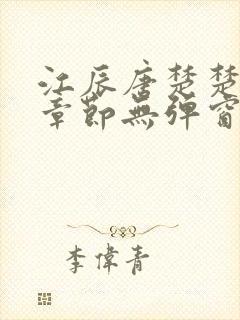 江辰唐楚楚
章節無彈窗
李偉青